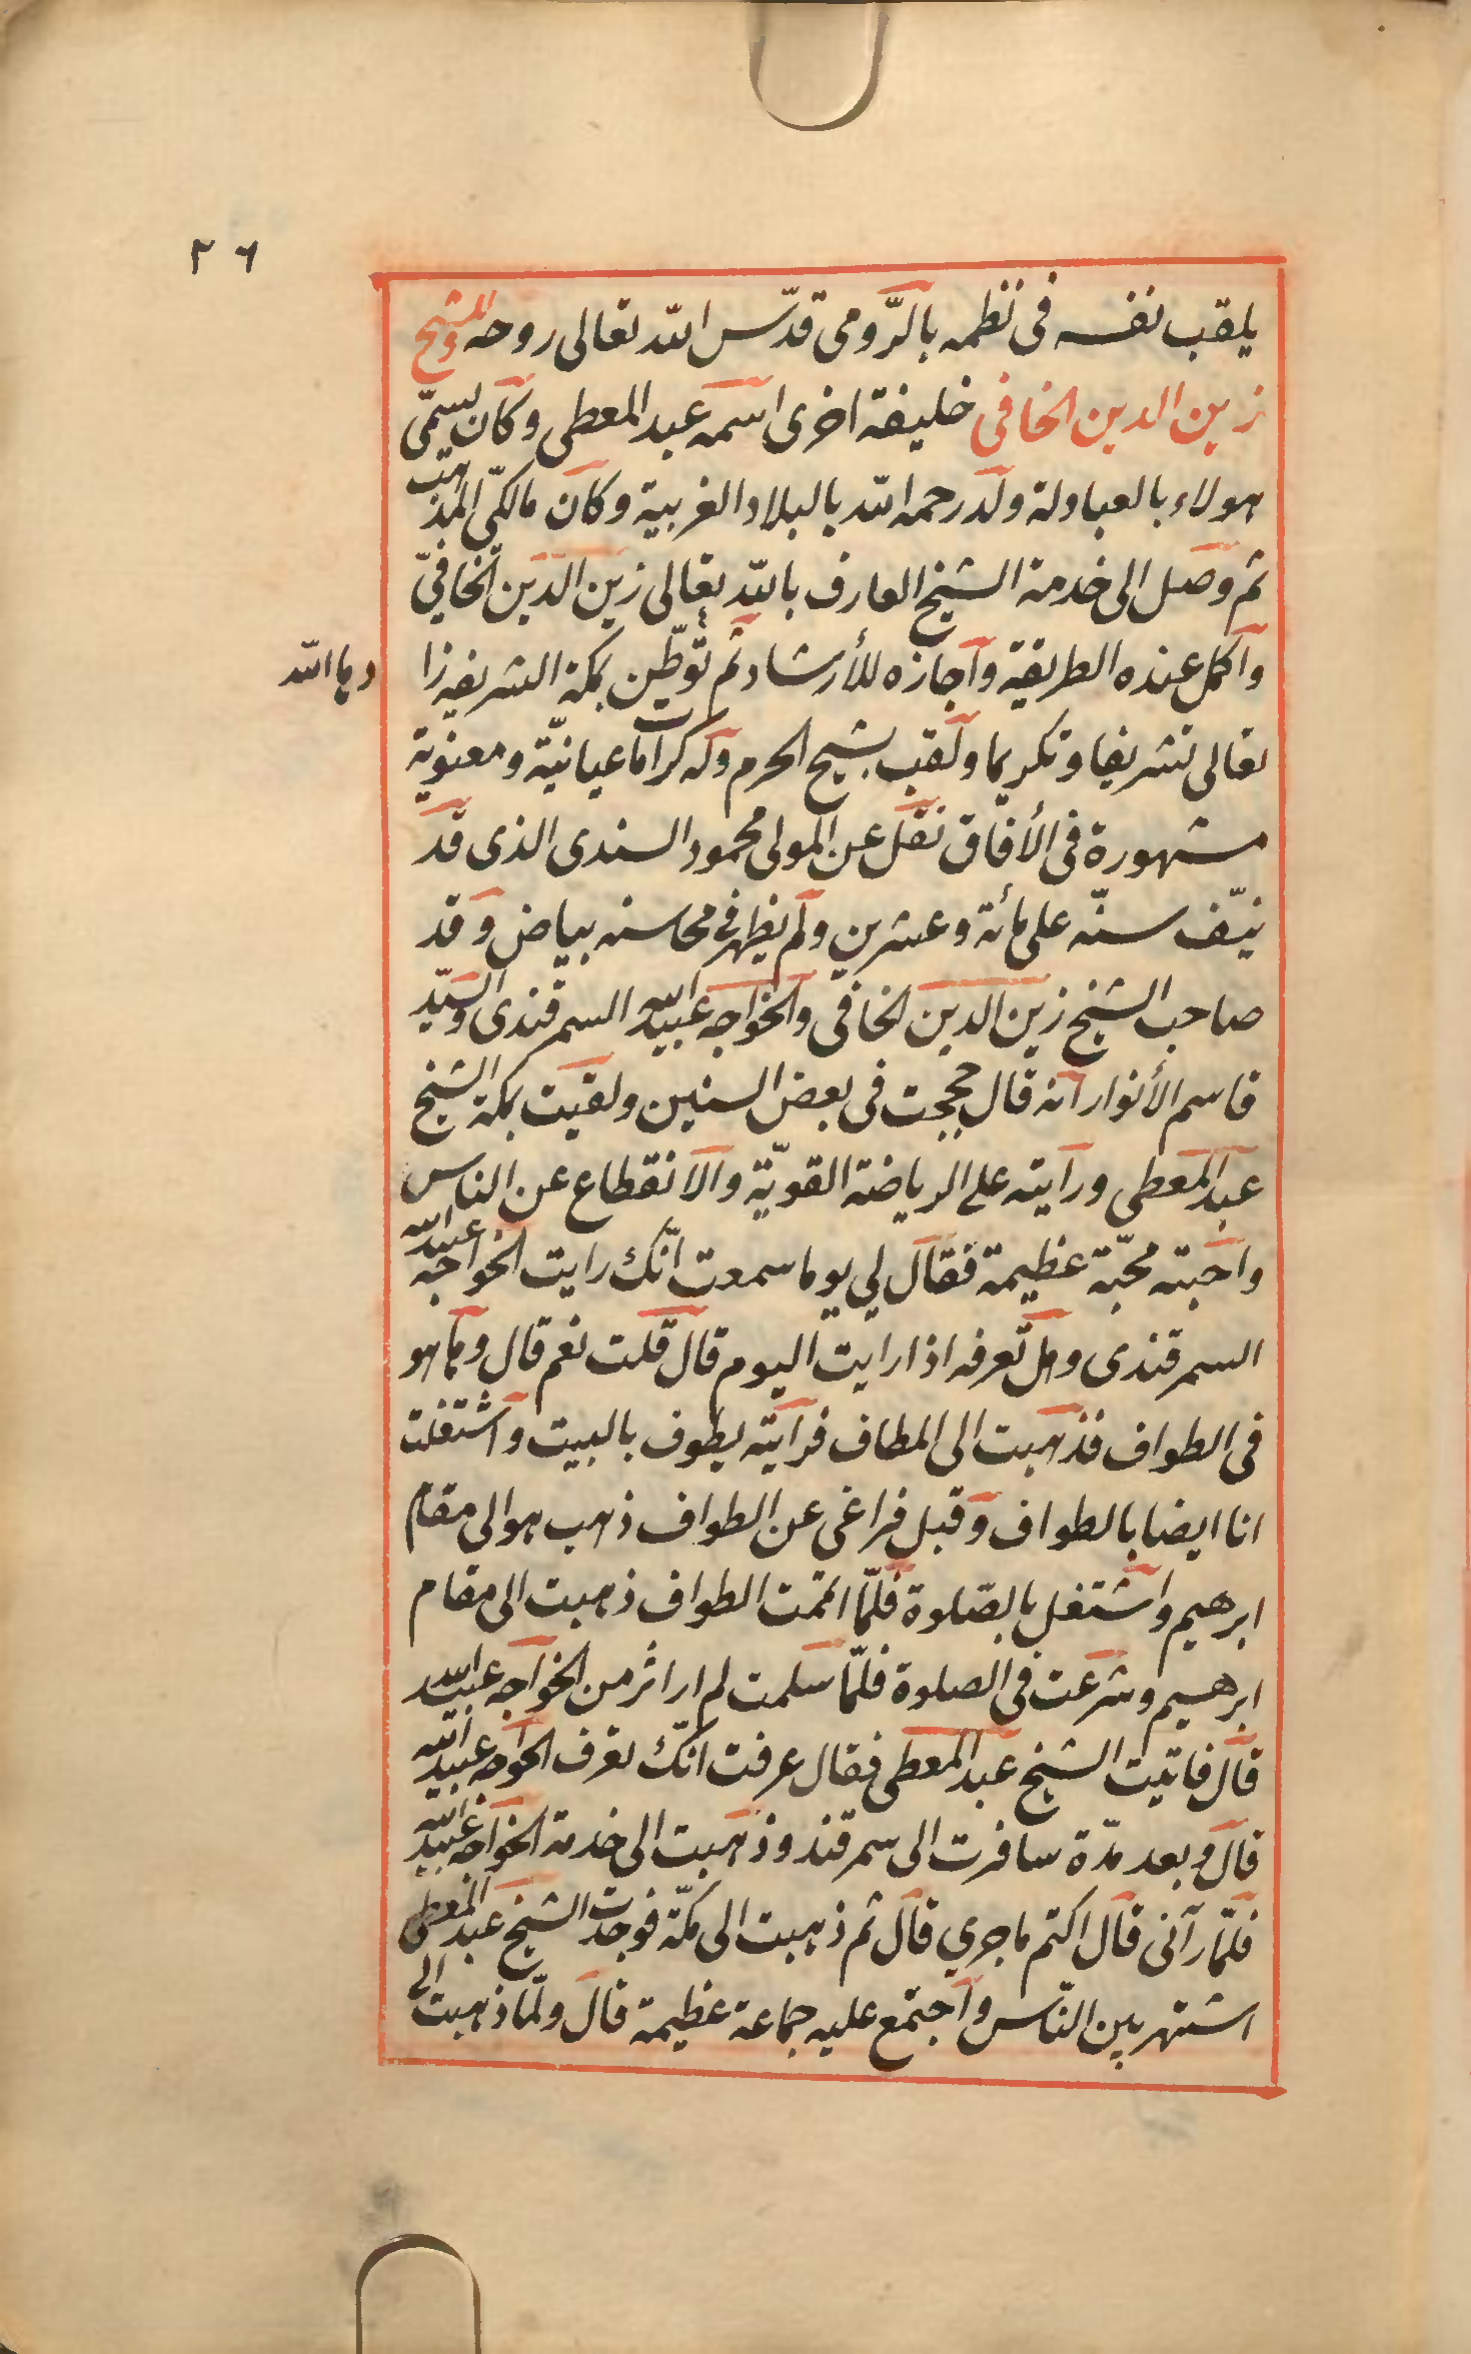 ٢٦
يلقب نفسه فى نظمه بالرّومى قدّس الله تعالى روحه وللشيخ
زين الدين الخافى خليفة اخرى اسمه عبد المعطى وكان يسمّى
هولاء بالعبادلة ولد رحمه الله بالبلاد الغربية وكان مالكىّ المذهب
ثم وصل الى خدمة الشيخ العارف بالله تعالى زين الدين الخافىّ
واكمل عنده الطريقة واجازه للأرشاد ثم توطّن بمكة الشريفة زا
دها الله
تعالى تشريفا وتكريما ولقب بشيخ الحرم وله كرامات عيانيّة ومعنوية
مشهورة فى الأفاق نقل عن المولى محمود السندى الذى قد
نيّف سنّه على مائة وعشرين ولم يظهر فى محاسنه بياض وقد
صاحب الشيخ زين الدين الخافى والخواجه عبيد الله السمرقندى والسيّد
قاسم الأنوار انه قال حججت فى بعض السنين ولقيت بمكة الشيخ
عبد المعطى ورايته على الرياضة القويّة والانقطاع عن الناس
واحبته محبّة عظيمة فقال لي يوما سمعت انّك رايت الخواجه عبيد الله
السمرقندى وهل تعرفه اذا رايت اليوم قال قلت نعم قال وها هو
فى الطواف فذهبت الى المطاف فرايته يطوف بالبيت واشتغلت
انا ايضا بالطواف وقبل فراغى عن الطواف ذهب هو الى مقام
ابرهيم واشتغل بالصّلوة فلمّا اتممت الطواف ذهبت الى مقام
ابرهيم وشرعت فى الصلوة فلمّا سلمت لم ار اثر من الخواجه عبيد الله
قال فاتيت الشيخ عبد المعطى فقال عرفت انّك تعرف الخواجه عبيد الله
قال وبعد مدّة سافرت الى سمرقند وذهبت الى خدمة الخواجه عبيد الله
فلمّا رآنى قال اكتم ما جري قال ثم ذهبت الى مكّة فوجدت الشيخ عبد المعطى
اشتهر بين النّاس واجتمع عليه جماعة عظيمة قال ولمّا ذهبت الى